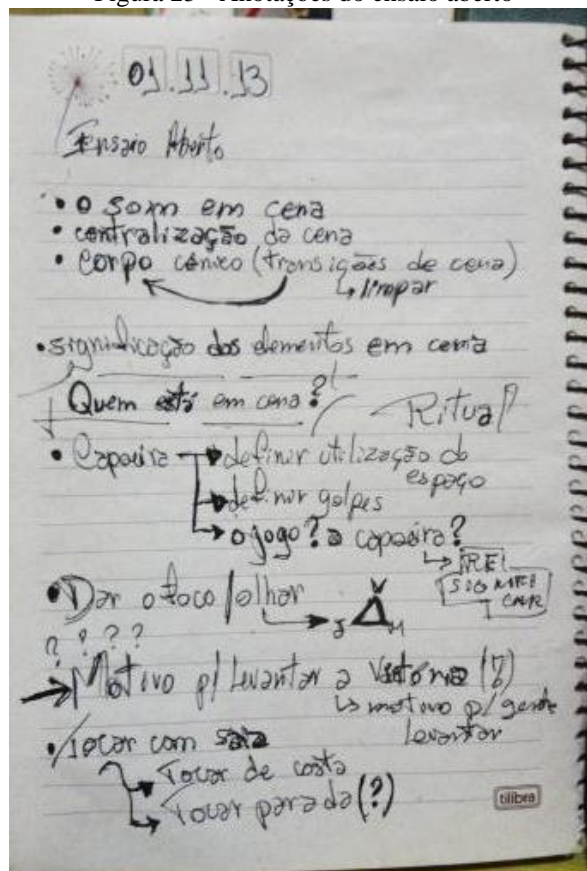 Figura 25 - Anotações do ensaio aberto
01.11.13
Ensaio Aberto
• o som em cena
• centralização da cena
• corpo cênico (transições de cena)
↳ limpar
• significação dos elementos em cena
Quem está em cena?
Ritual?
• Capoeira → definir utilização do espaço
→ definir golpes
→ o jogo? a capoeira?
↳ RE
SIGNIFICAR
• Dar o foco/olhar → J Δ M
? ? ? ?
→ Motivo p/ levantar a Vitória (?)
↳ motivo p/ gente levantar
• Tocar com saia
→ Tocar de costa
→ Tocar parada (?)
tilibra